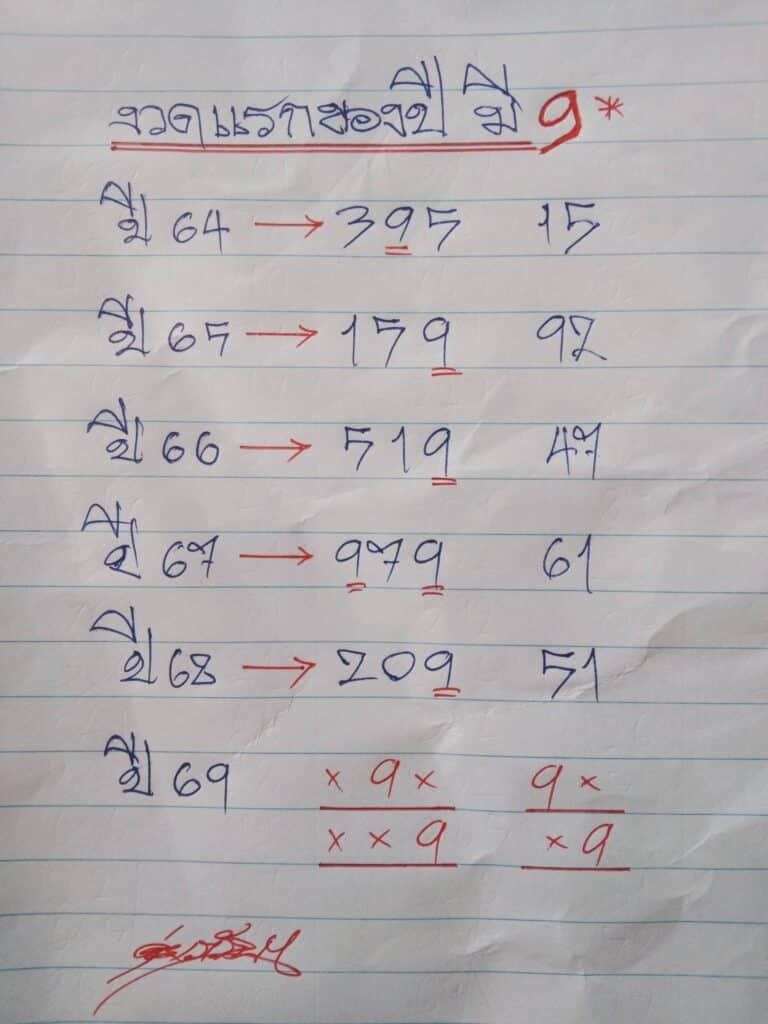 งวดแรกของปี มี 9*
ปี 64 → 395 15
ปี 65 → 159 92
ปี 66 → 519 47
ปี 67 → 979 61
ปี 68 → 209 51
ปี 69 × 9 × 9 ×
× × 9 × 9